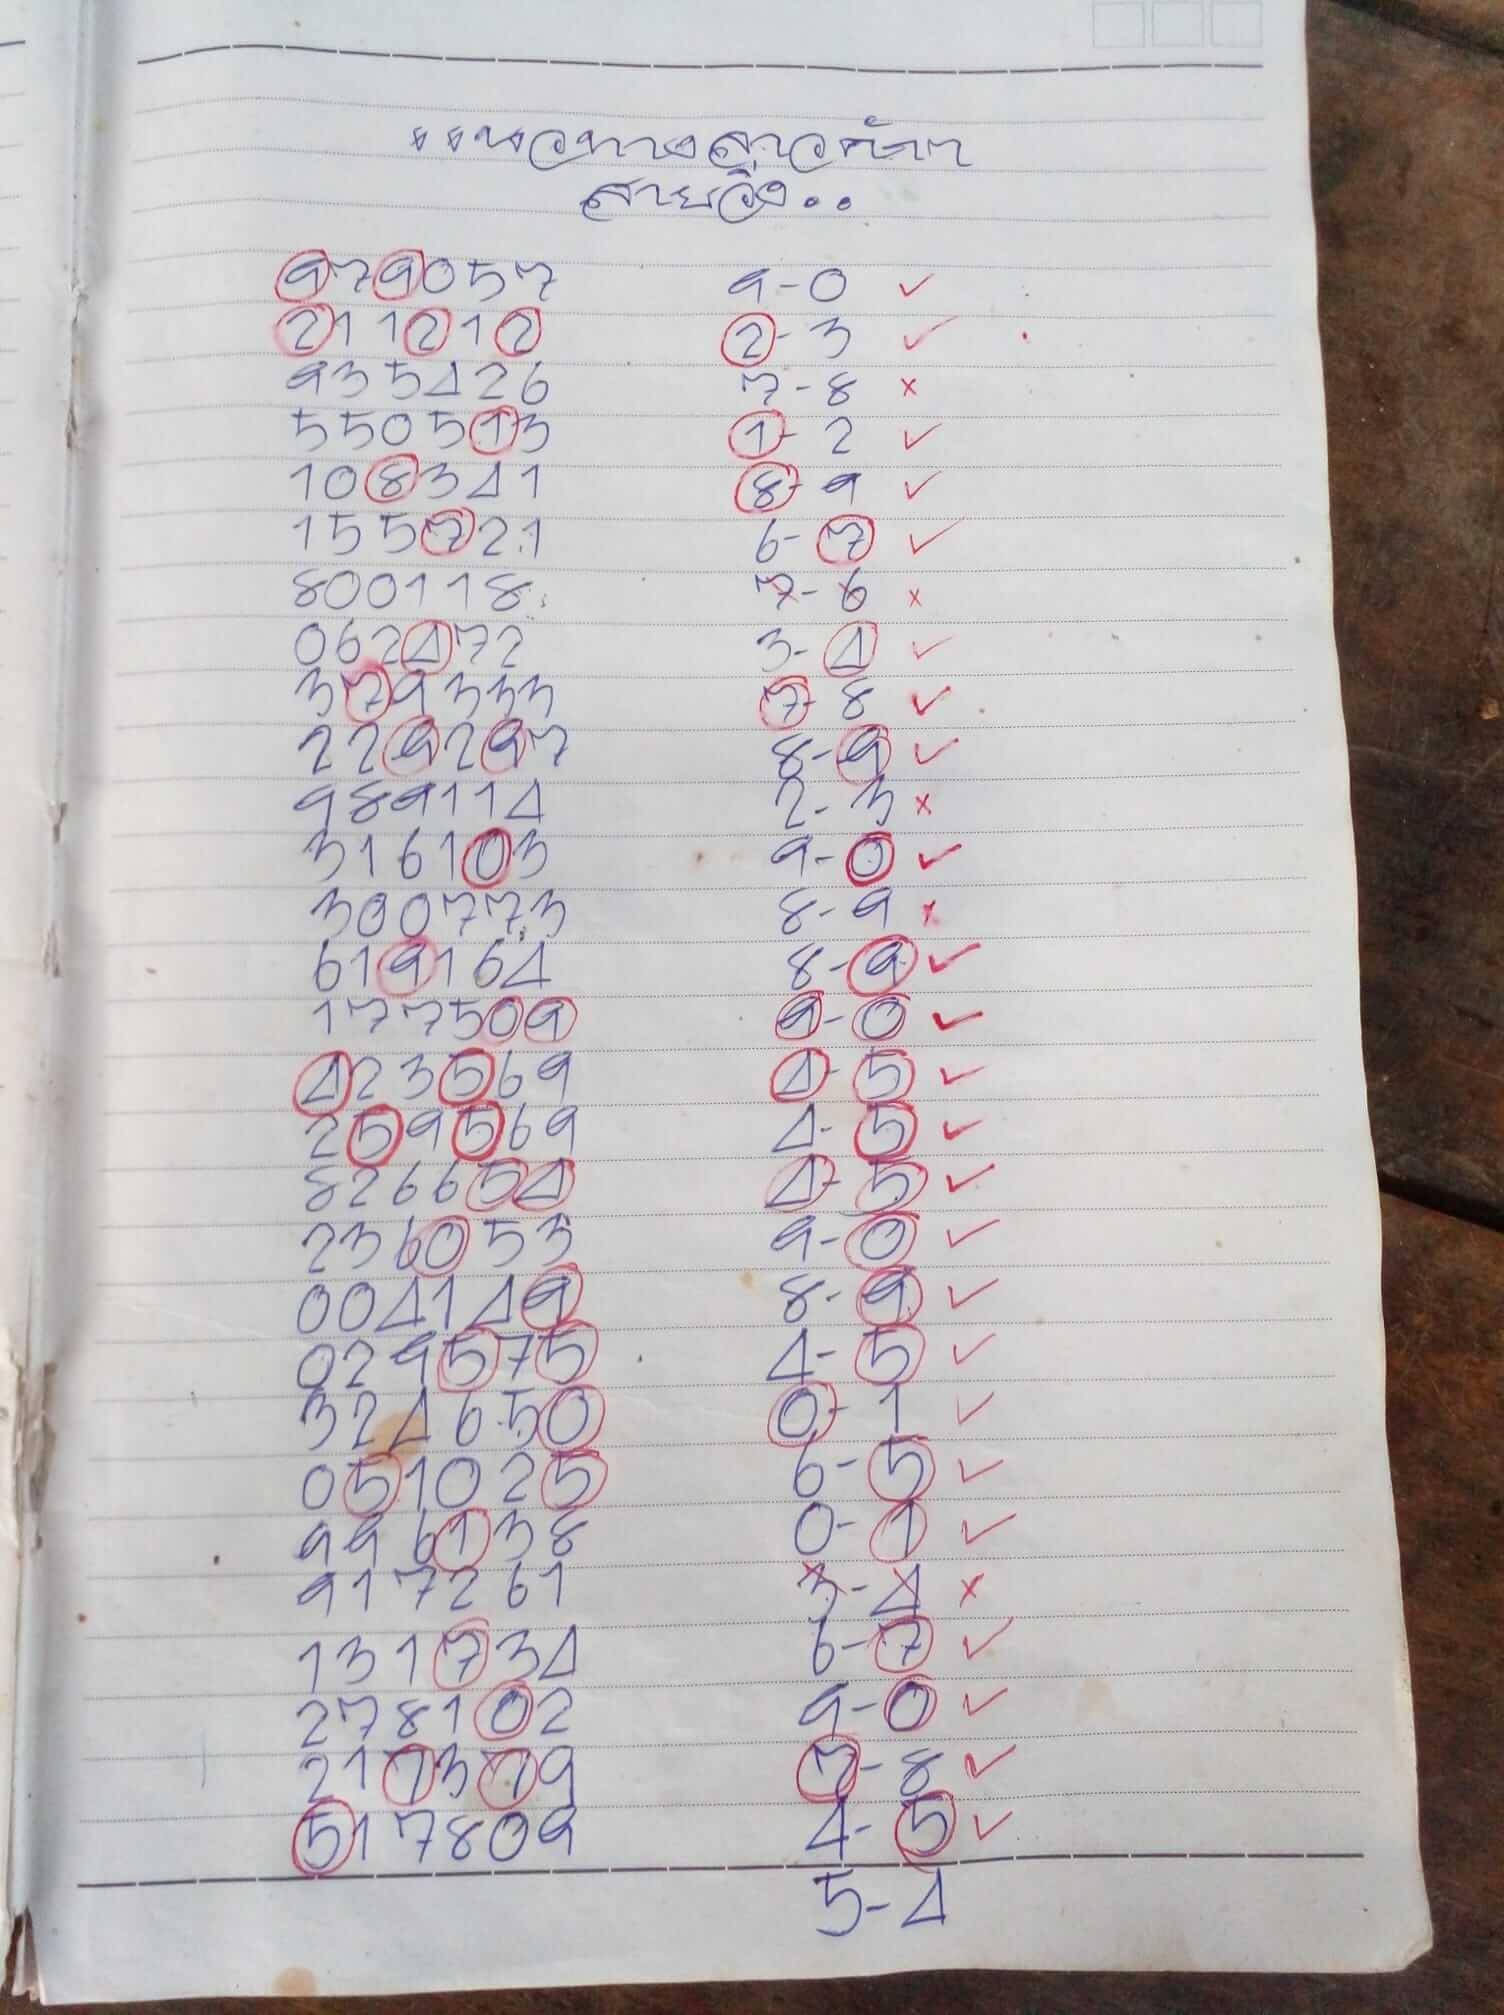 แนวทางลาวค้าบ
สายวิ่ง..
979057 9-0 ✓
211212 2-3 ✓
935426 7-8 x
550513 1-2 ✓
108341 8-9 ✓
155721 6-7 ✓
800118 7-6 x
062472 3-4 ✓
379333 7-8 ✓
229297 8-9 ✓
989114 2-3 x
316103 9-0 ✓
300773 8-9 x
619164 8-9 ✓
177509 9-0 ✓
423569 4-5 ✓
259569 4-5 ✓
826654 4-5 ✓
236053 9-0 ✓
004149 8-9 ✓
029575 4-5 ✓
324650 0-1 ✓
051025 6-5 ✓
996138 0-1 ✓
917261 3-4 x
131734 6-7 ✓
278102 9-0 ✓
217379 7-8 ✓
517809 4-5 ✓
5-4